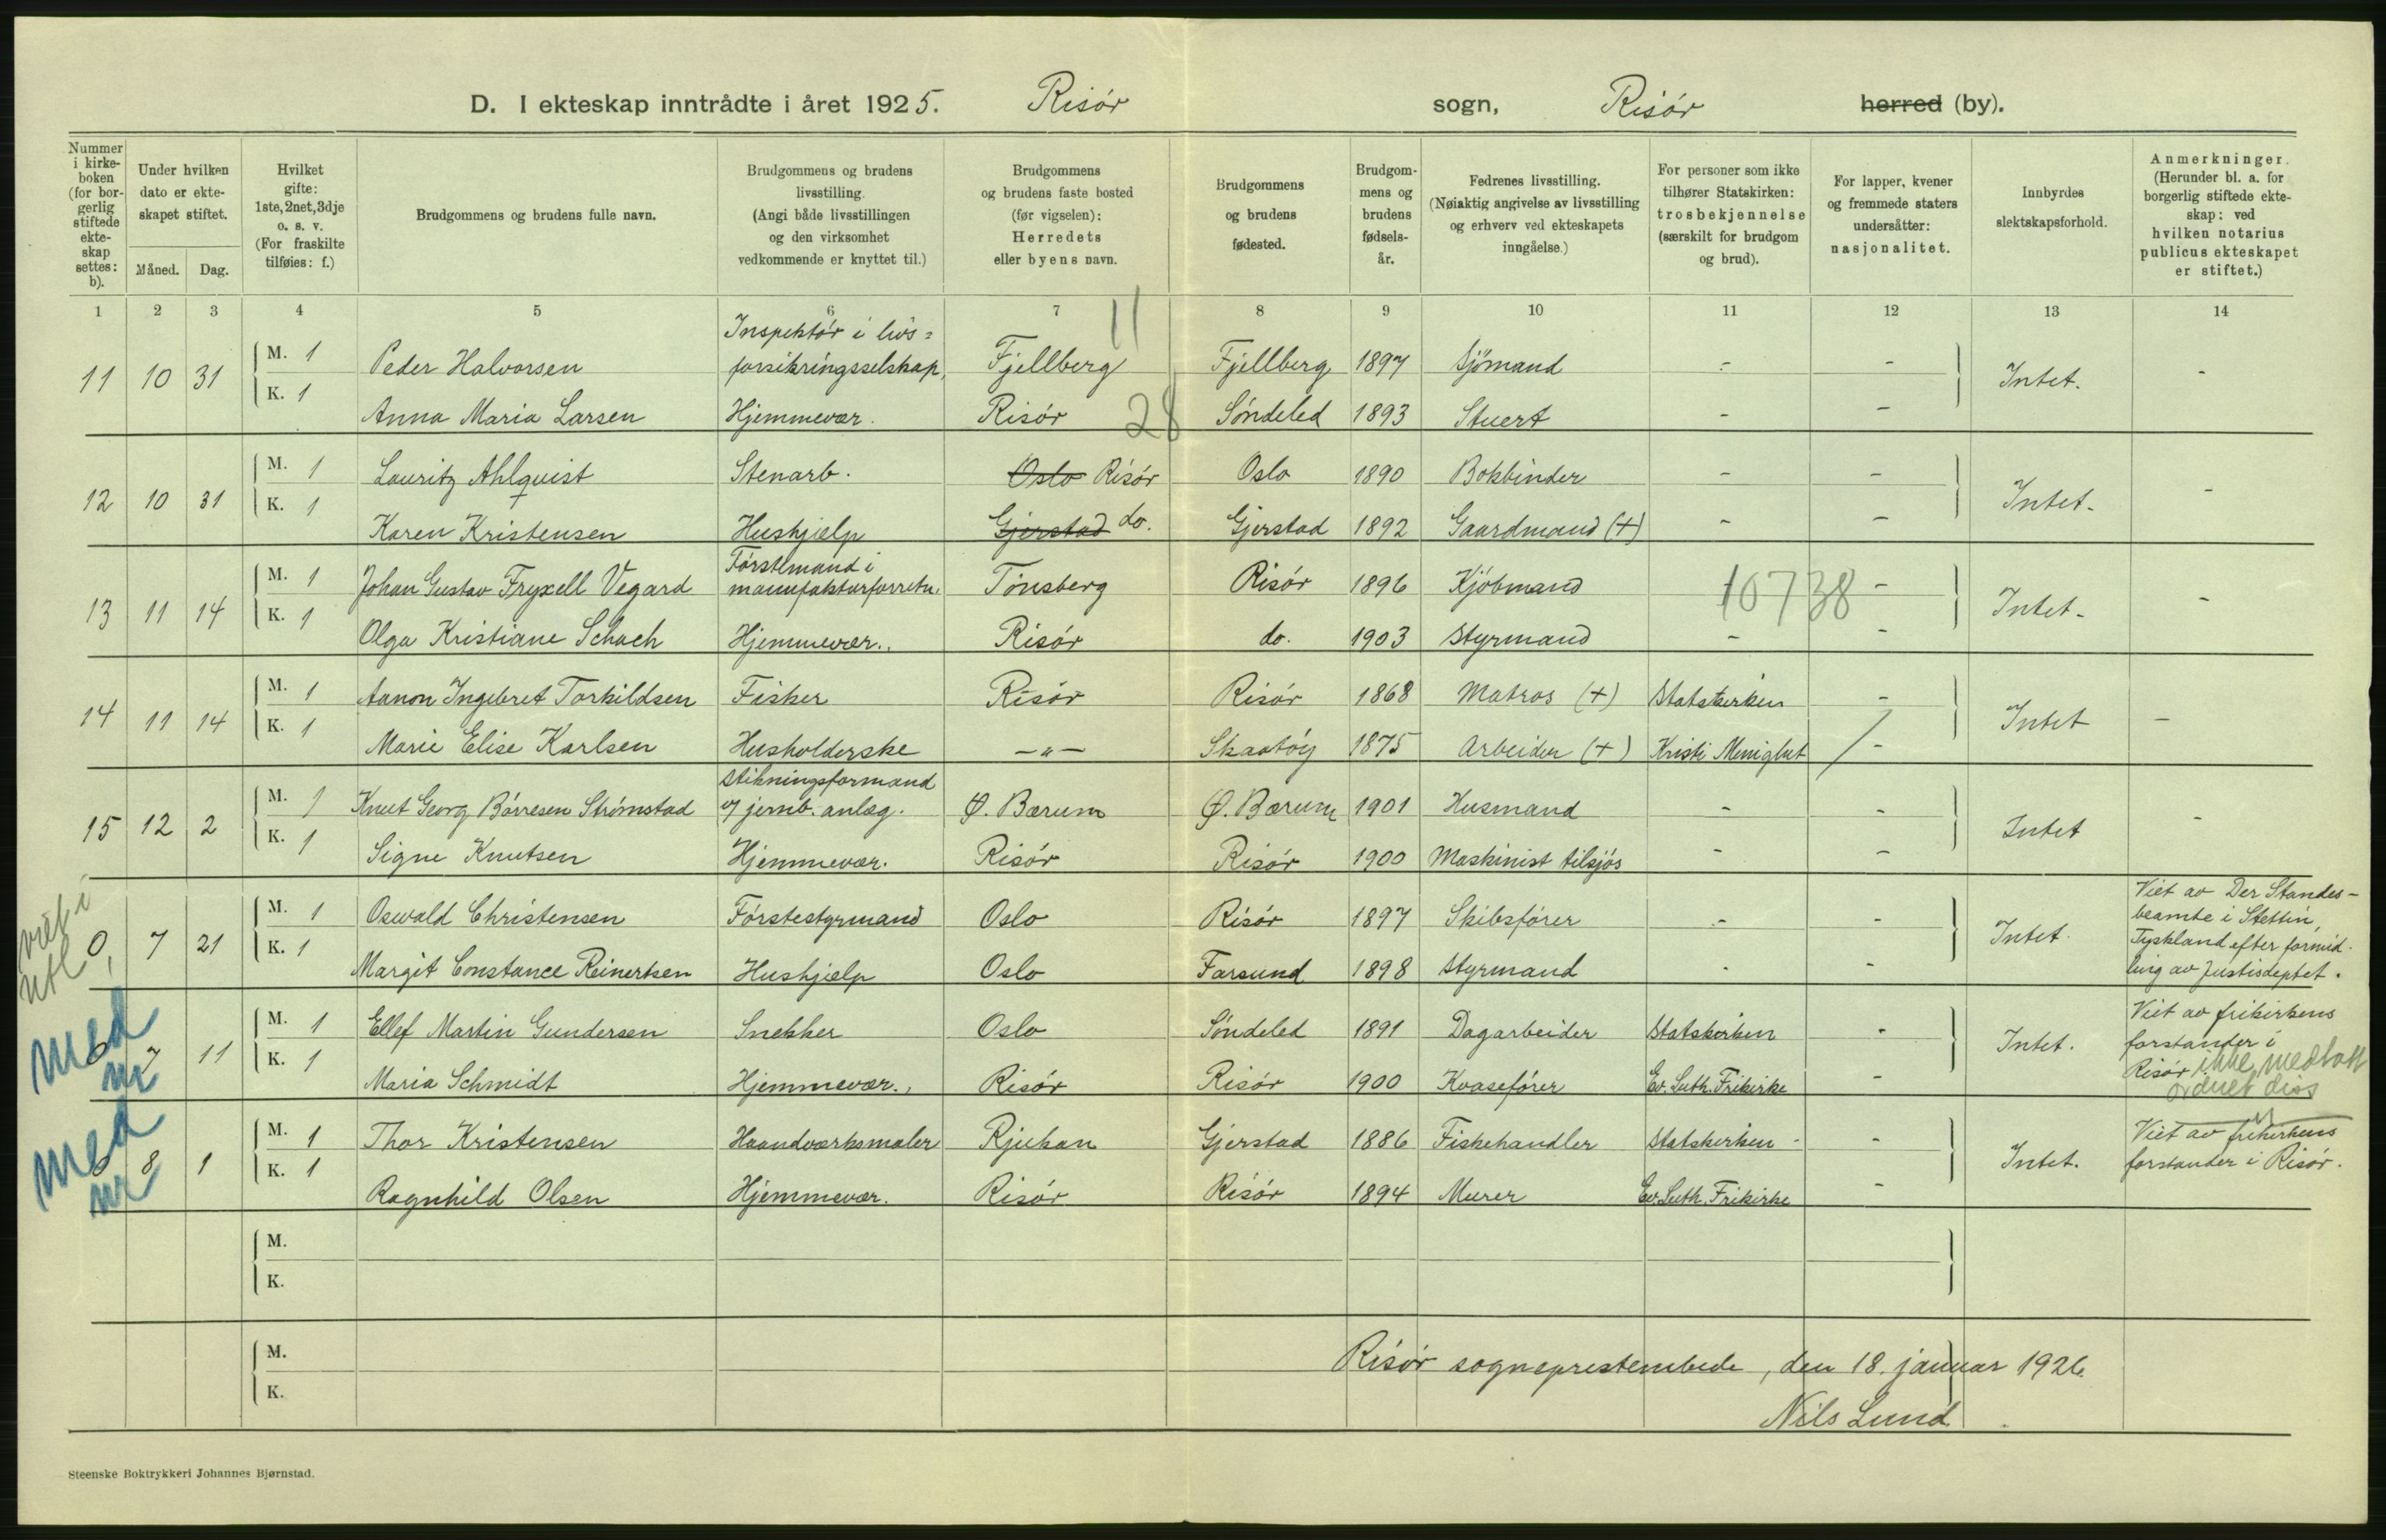 D. I ekteskap inntrådte i året 1925. Risör sogn, Risör herred (by).
Nummer i kirke-boken (for bor-gerlig stiftede ekte-skap settes: b).
Under hvilken dato er ekte-skapet stiftet.
Måned. Dag.
Hvilket gifte: 1ste, 2net, 3dje o. s. v. (For fraskilte tilføies: f.)
Brudgommens og brudens fulle navn.
Brudgommens og brudens livsstilling. (Angi både livsstillingen og den virksomhet vedkommende er knyttet til.)
Brudgommens og brudens faste bosted (før vigselen): Herredets eller byens navn.
Brudgommens og brudens fødested.
Brudgom-mens og brudens fødsels-år.
Fedrenes livsstilling. (Nøiaktig angivelse av livsstilling og erhverv ved ekteskapets inngåelse.)
For personer som ikke tilhører Statskirken: trosbekjennelse (særskilt for brudgom og brud).
For lapper, kvener og fremmede staters undersåtter: nasjonalitet.
Innbyrdes slektskapsforhold.
Anmerkninger. (Herunder bl. a. for borgerlig stiftede ekte-skap: ved hvilken notarius publicus ekteskapet er stiftet.)
1 2 3 4 5 6 7 8 9 10 11 12 13 14
11
11 10 31 M. 1 Peder Halvorsen Inspektör i livs=forsikringsselskap, Fjellberg Fjellberg 1897 Sjömand - - Intet. -
K. 1 Anna Maria Larsen Hjemmevær. Risör 28 Söndeled 1893 Stuert - -
12 10 31 M. 1 Lauritz Ahlquist Stenarb. Oslo Risör Oslo 1890 Bokbinder - - Intet. -
K. 1 Karen Kristensen Hushjælp Gjerstad do. Gjerstad 1892 Gaardmand (+) - -
13 11 14 M. 1 Johan Gustav Fryxell Vegard Förstemand i manufakturforretn. Tönsberg Risör 1896 Kjöbmand 10738 - Intet. -
K. 1 Olga Kristiane Schach Hjemmevær.. Risör do. 1903 Styrmand - -
14 11 14 M. 1 Aanon Ingebret Torkildsen Fisker Risör Risör 1868 Matros (+) Statskirken - Intet -
K. 1 Marie Elise Karlsen Husholderske -"- Skaatöy 1875 Arbeider (+) Kristi Menighet / -
15 12 2 M. 1 Knut Georg Börresen Strömstad Stikningsformand v/ jernb. anlæg. Ö. Bærum Ö. Bærum 1901 Husmand - - Intet -
K. 1 Signe Knutsen Hjemmevær. Risör Risör 1900 Maskinist tilsjös - -
viet i utl
0, 7 21 M. 1 Oswald Christensen Förstestyrmand Oslo Risör 1897 Skibsförer - - Intet. Viet av Der Standes-
beamte i Stettin,
Tyskland efter formid-
K. 1 Margit Constance Reinertsen Hushjælp Oslo Farsund 1898 Styrmand - - ling av Justisdeptet.
med nr
0 7 11 M. 1 Ellef Martin Gundersen Snekker Oslo Söndeled 1891 Dagarbeider Statskirken - Intet. Viet av frikirkens
forstander i
K. 1 Maria Schmidt Hjemmevær., Risör Risör 1900 Kvaseförer Ev. Luth. Frikirke - Risör ikke medtatt
diss
med nr
0 8 1 M. 1 Thor Kristensen Haandværksmaler Rjukan Gjerstad 1886 Fiskehandler Statskirken - - Intet. Viet av frikirkens
forstander i Risör.
K. 1 Ragnhild Olsen Hjemmevær. Risör Risör 1894 Murer Ev. Luth. Frikirke -
M.
K.
M.
K.
Risör sogneprestembede, den 18. januar 1926.
Nils Lund.
Steenske Boktrykkeri Johannes Bjørnstad.